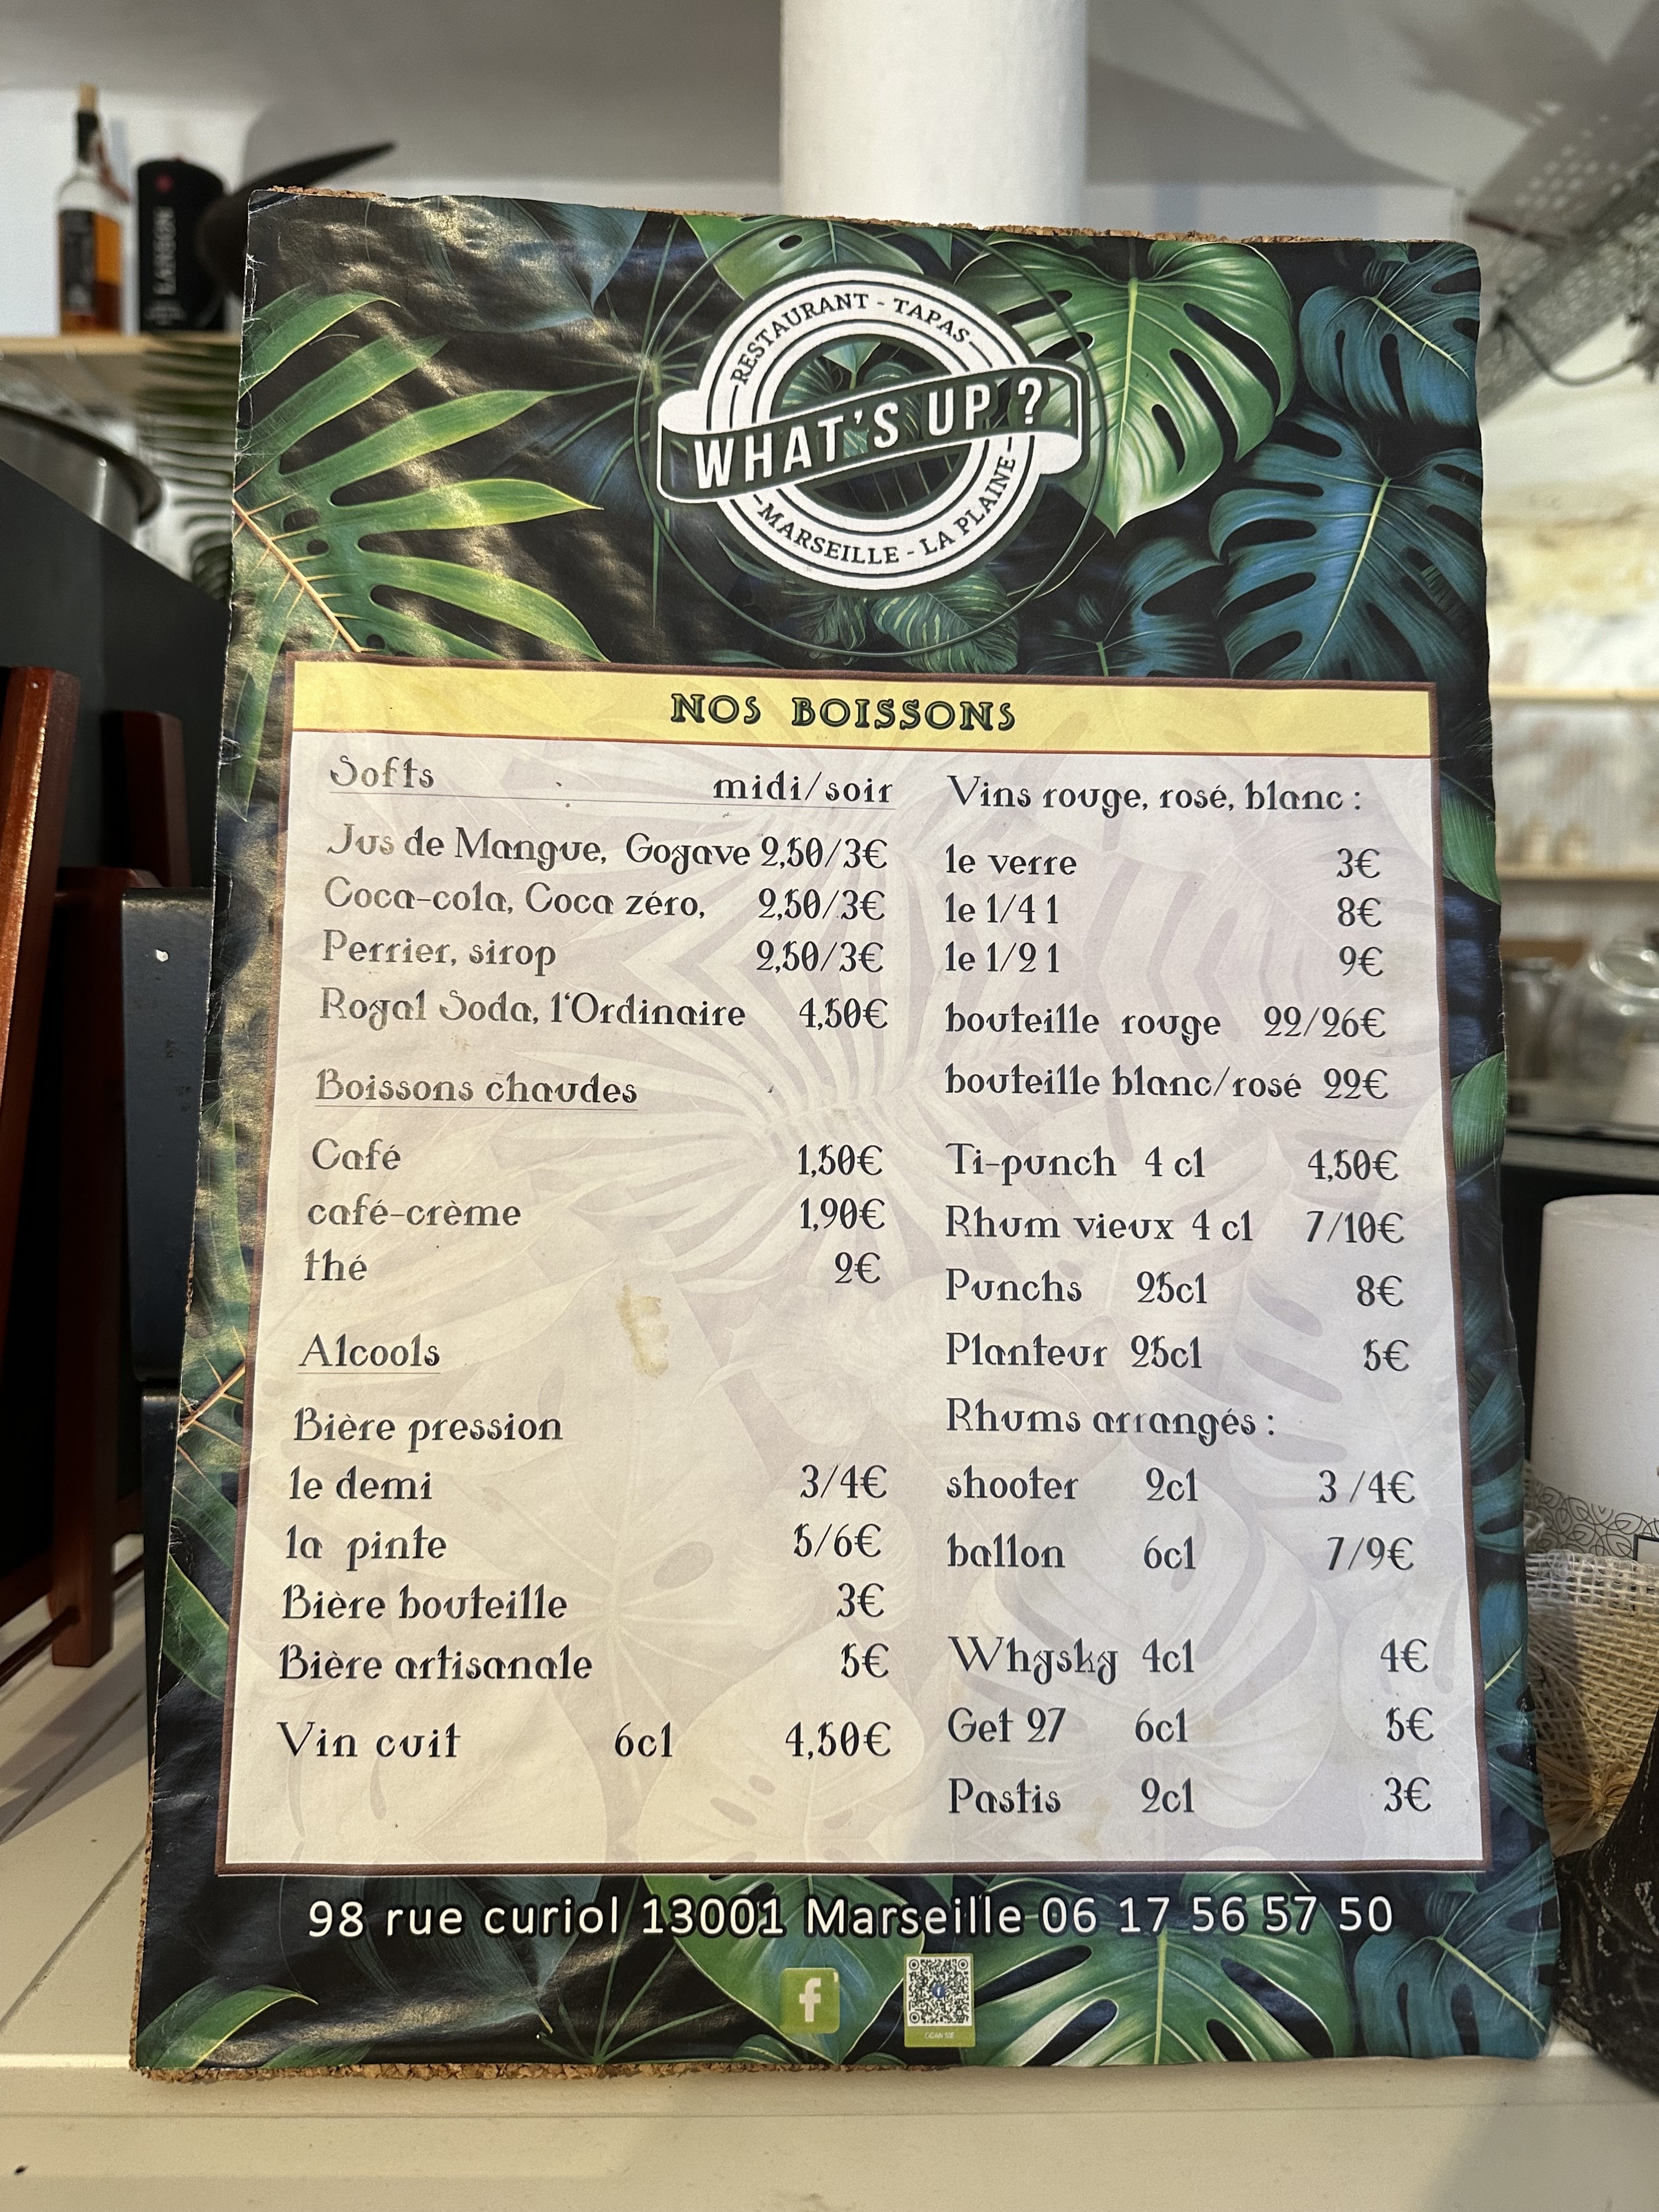 LARSEN
RESTAURANT - TAPAS
WHAT'S UP ?
MARSEILLE - LA PLAINE
NOS BOISSONS
Softs midi/soir
Jus de Mangue, Goyave 2,50/3€
Coca-cola, Coca zéro, 2,50/3€
Perrier, sirop 2,50/3€
Royal Soda, l'Ordinaire 4,50€
Boissons chaudes
Café 1,50€
café-crème 1,90€
thé 2€
Alcools
Bière pression
le demi 3/4€
la pinte 5/6€
Bière bouteille 3€
Bière artisanale 5€
Vin cuit 6cl 4,50€
Vins rouge, rosé, blanc :
le verre 3€
le 1/4 l 8€
le 1/2 l 9€
bouteille rouge 22/26€
bouteille blanc/rosé 22€
Ti-punch 4 cl 4,50€
Rhum vieux 4 cl 7/10€
Punchs 25cl 8€
Planteur 25cl 5€
Rhums arrangés :
shooter 2cl 3 /4€
ballon 6cl 7/9€
Whysky 4cl 4€
Get 27 6cl 5€
Pastis 2cl 3€
98 rue curiol 13001 Marseille 06 17 56 57 50
f